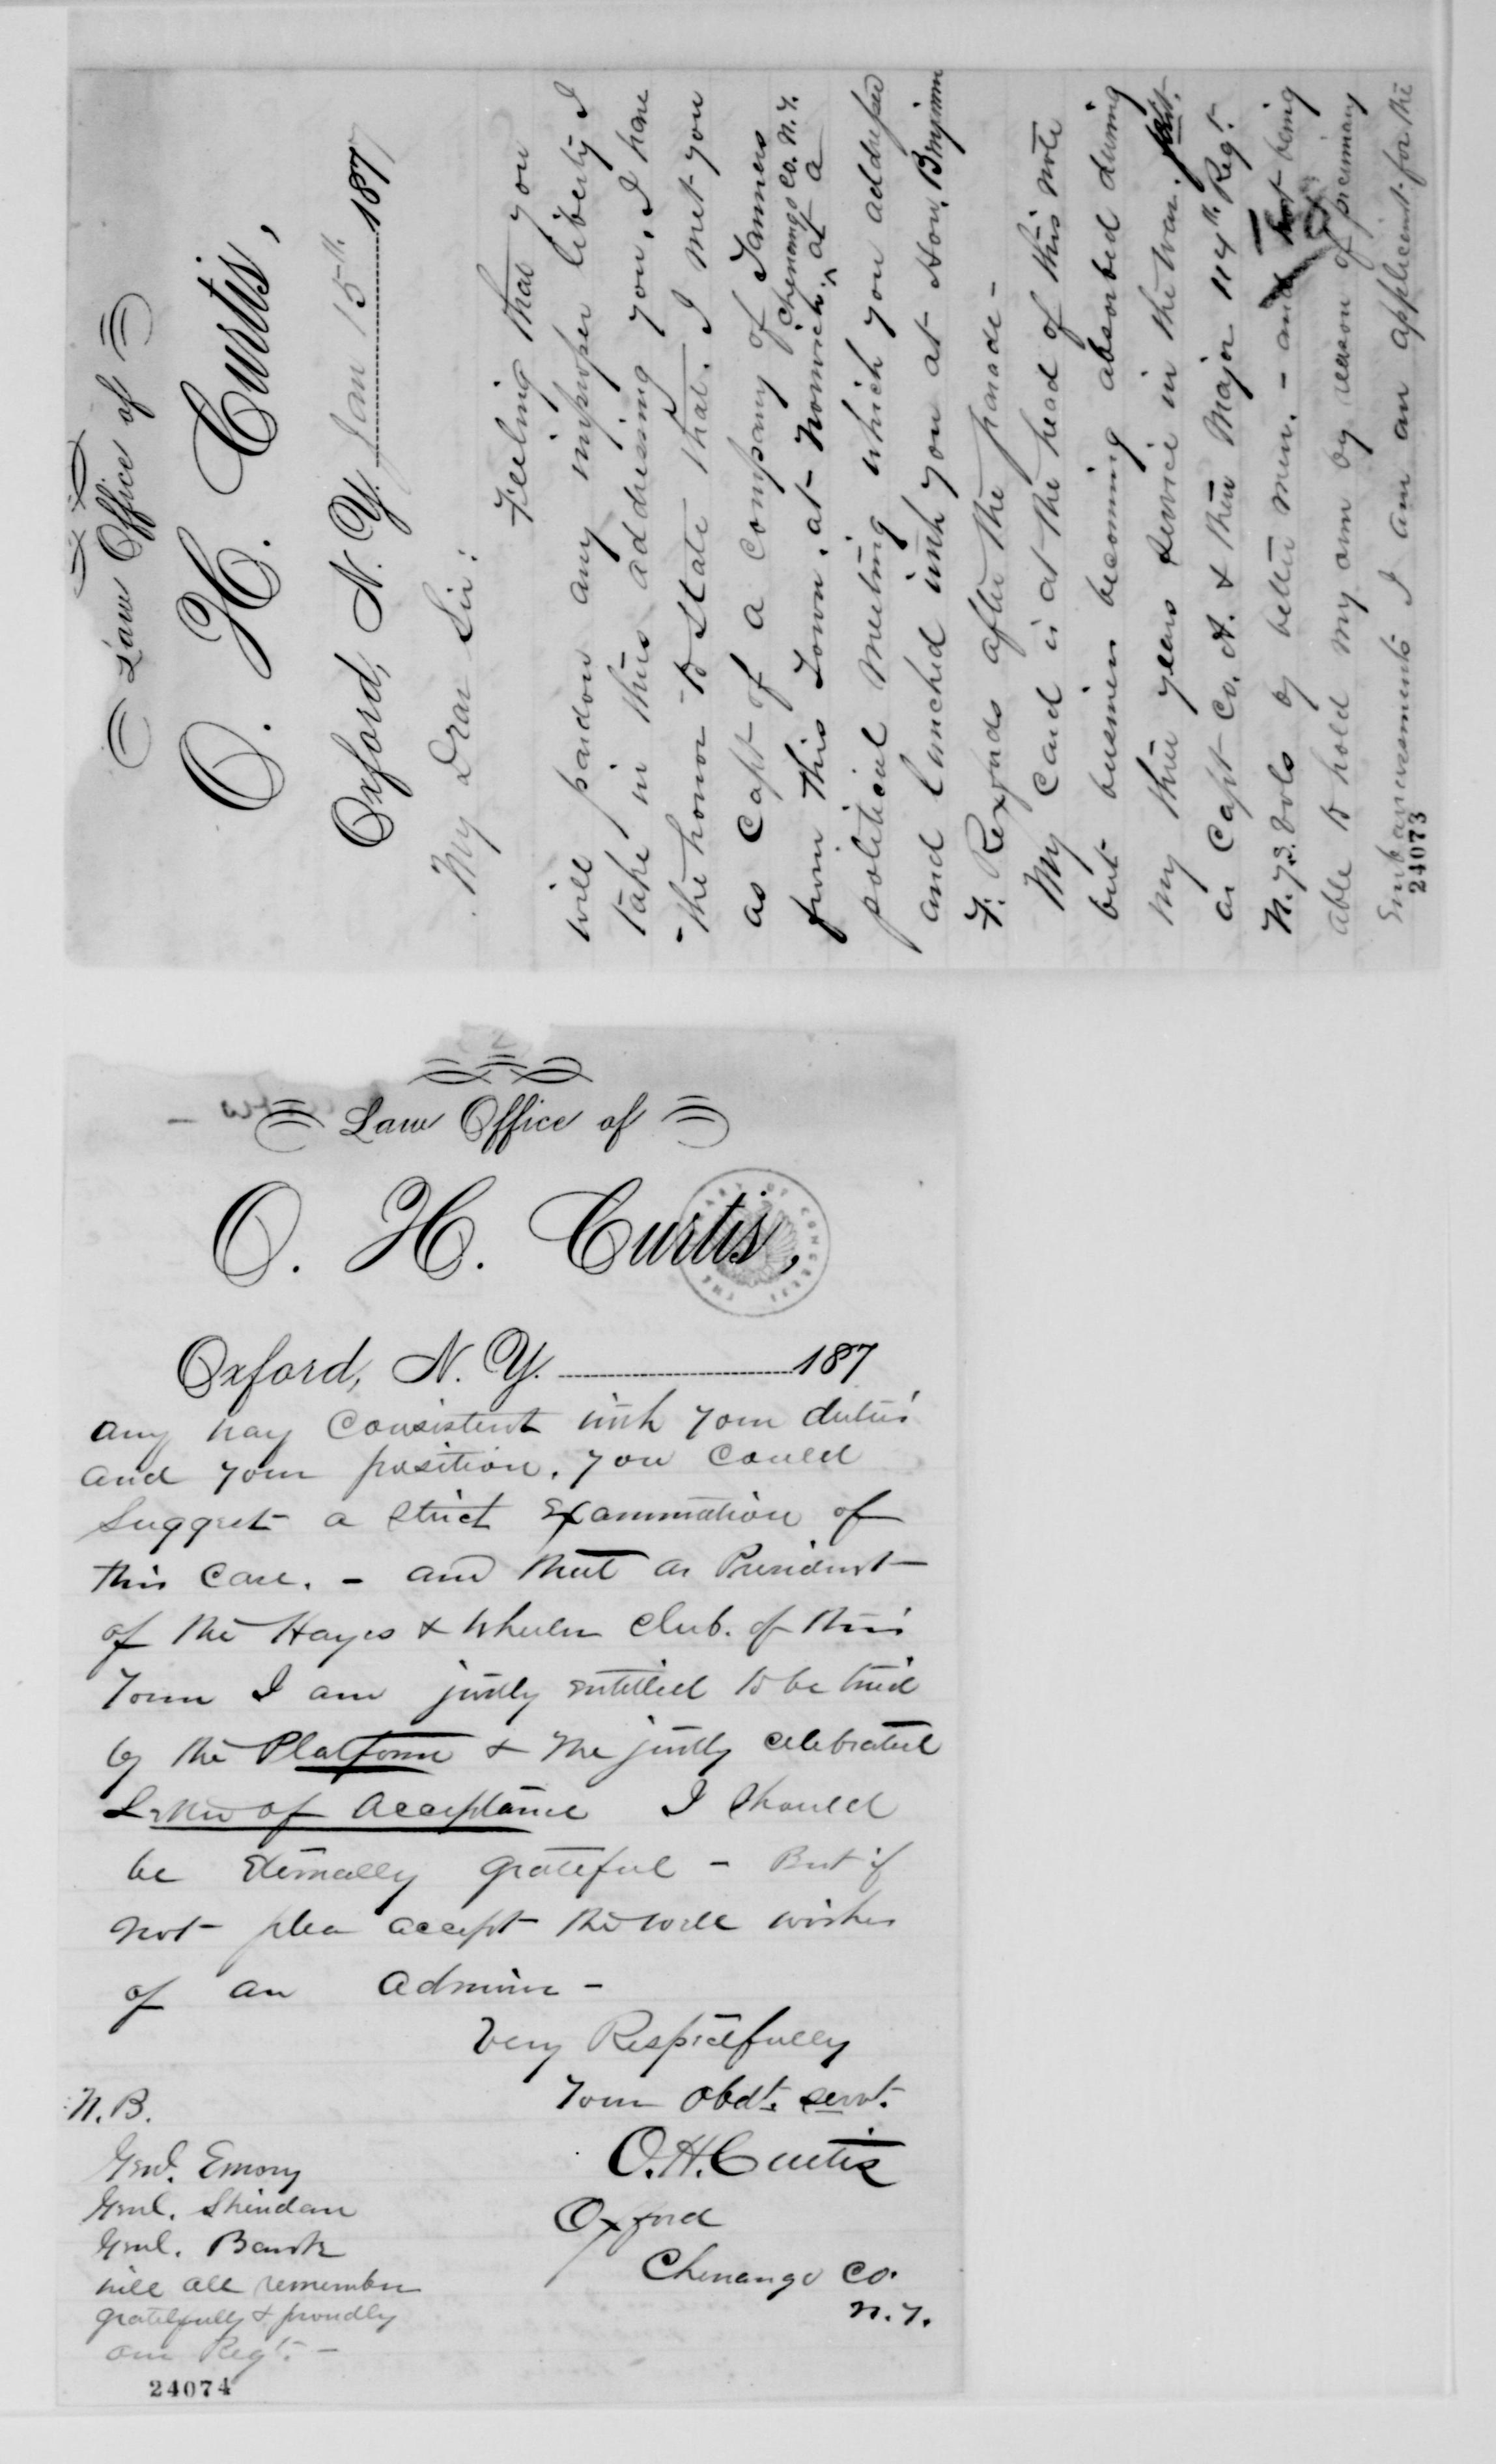 Law Office of
O. H. Curtis,
Oxford, N. Y. Jan 15th 1877
My Dear Sir:
Feeling that you
will pardon any improper liberty I
take in thus addressing you, I have
the honor to state that I met you
as Capt of a Company of Tanners
from this Town, at Norwich, Chenango Co. N.Y. at a
political meeting which you addressed
and lunched with you at Hon. Benjamin
F. Rexfords after the parade -
My Card is at the head of this note
but business becoming absorbed during
my three years service in the war.
as Capt Co. A. & then Major 114th Regt
N.Y.S. Vols by better men. - and not being
able to hold my own by reason of pecuniary
Embarrassments I am an applicant for the
24073
Law Office of
O. H. Curtis,
Oxford, N. Y. 187
any way Consistent with your duties
and your position, you could
suggest a strict Examination of
this case. - and that as President
of the Hayes & Wheeler Club. of this
Town I am justly entitled to be tried
by the Platform & the justly celebrated
Letter of Acceptance I should
be Eternally grateful - But if
not pleas accept the well wishes
of an admirer -
Very Respectfully
Your Obdt. servt.
O. H. Curtis
Oxford
Chenango Co.
N.Y.
N.B.
Genl. Emory
Genl. Sheridan
Genl. Banks
will all remember
gratefully & proudly
our Regt. -
24074